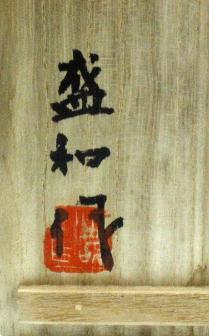 盛和作